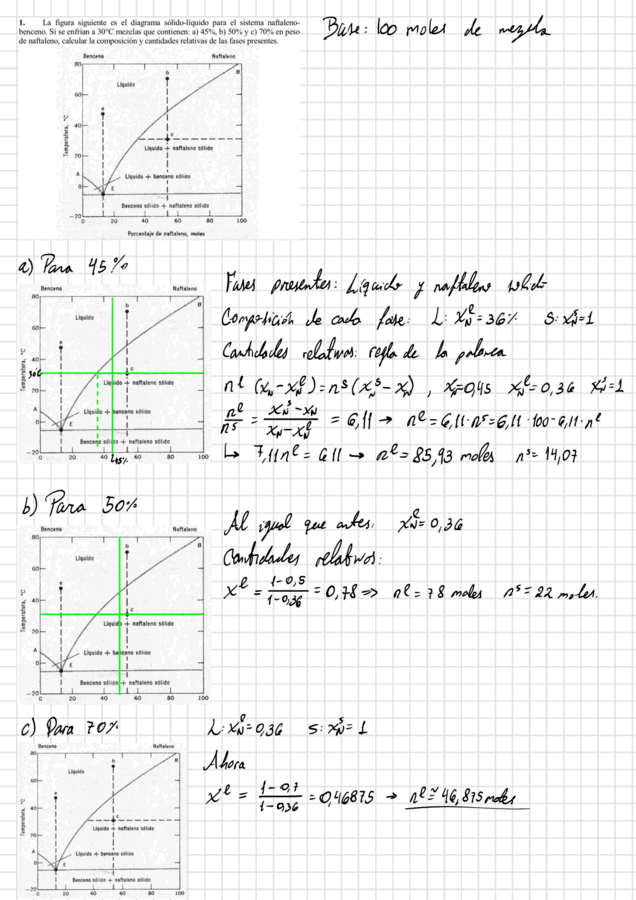 1. La figura siguiente es el diagrama sólido-líquido para el sistema naftaleno-
benceno. Si se enfrían a 30°C mezclas que contienen: a) 45%, b) 50% y c) 70% en peso
de naftaleno, calcular la composición y cantidades relativas de las fases presentes.
Base: 100 moles de mezcla
Benceno Naftaleno
80
60
40
20
0
-20
Temperatura, °C
Líquido
Líquido + naftaleno sólido
Líquido + benceno sólido
Benceno sólido + naftaleno sólido
A
B
E
a
b
c
0 20 40 60 80 100
Porcentaje de naftaleno, moles
a) Para 45%
Benceno Naftaleno
80
60
30°C
20
0
-20
Temperatura, °C
Líquido
Líquido + naftaleno sólido
Líquido + benceno sólido
Benceno sólido + naftaleno sólido
A
B
E
a
b
c
0 20 40 60 80 100
45%
Fases presentes: Líquido y naftaleno sólido
Composición de cada fase: L: x_N^l = 36% S: x_N^s = 1
Cantidades relativas: regla de la palanca
n^l (x_N - x_N^l) = n^s (x_N^s - x_N), x_N = 0,45 x_N^l = 0,36 x_N^s = 1
n^l/n^s = (x_N^s - x_N)/(x_N - x_N^l) = 6,11 → n^l = 6,11·n^s = 6,11·100 - 6,11·n^l
↳ 7,11 n^l = 611 → n^l = 85,93 moles n^s = 14,07
b) Para 50%
Benceno Naftaleno
80
60
40
20
0
-20
Temperatura, °C
Líquido
Líquido + naftaleno sólido
Líquido + benceno sólido
Benceno sólido + naftaleno sólido
A
B
E
a
b
c
0 20 40 60 80 100
Al igual que antes: x_N^l = 0,36
Cantidades relativas:
x^l = (1-0,5)/(1-0,36) = 0,78 ⇒ n^l = 78 moles n^s = 22 moles.
c) Para 70%
Benceno Naftaleno
80
60
40
20
0
-20
Temperatura, °C
Líquido
Líquido + naftaleno sólido
Líquido + benceno sólido
Benceno sólido + naftaleno sólido
A
B
E
a
b
c
0 20 40 60 80 100
L: x_N^l = 0,36 S: x_N^s = 1
Ahora
x^l = (1-0,7)/(1-0,36) = 0,46875 → n^l ≈ 46,875 moles